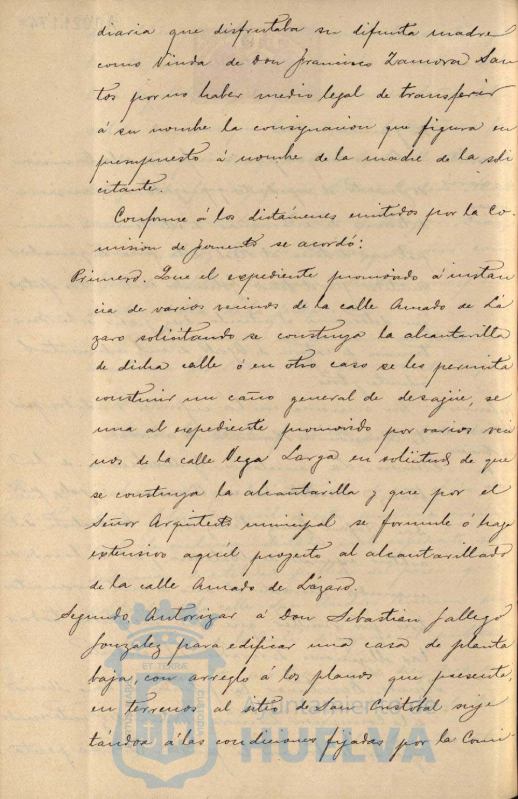 diaria que disfrutaba su difunta madre
como Viuda de Don Francisco Zamora San
tos por no haber medio legal de transferir
á su nombre la consignacion que figura en
presupuesto á nombre de la madre de la soli
citante.
Conforme á los dictámenes emitidos por la Co-
mision de Fomento se acordó:
Primero. Que el expediente promovido á instan
cia de varios vecinos de la calle Amado de Lá
zaro solicitando se construya la alcantarilla
de dicha calle ó en otro caso se les permita
construir un caño general de desagüe, se
una al expediente promovido por varios veci
nos de la calle Vega Larga en solicitud de que
se construya la alcantarilla y que por el
Señor Arquitecto municipal se formule ó haga
extensivo aquél proyecto al alcantarillado
de la calle Amado de Lázaro.
Segundo. Autorizar á Don Sebastian Gallego
Gonzalez para edificar una casa de planta
baja, con arreglo á los planos que presenta,
en terrenos al sitio de San Cristobal suje
tándose á las condiciones fijadas por la Comi
PORTUS MARIS
ET TERRÆ
CUSTODIA
Ayuntamiento de
HUELVA